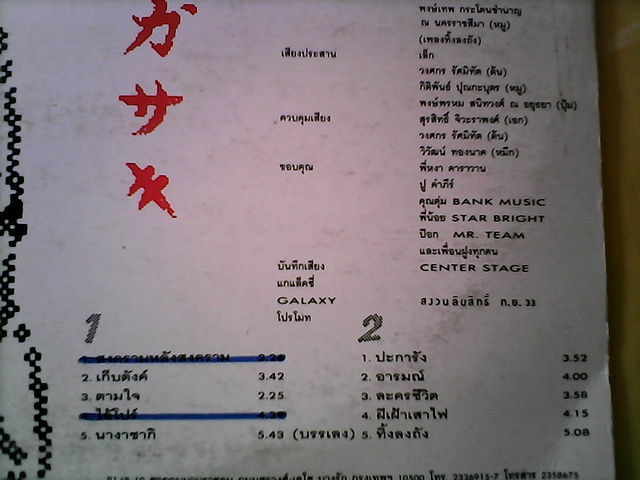 ガサキ
พงษ์เทพ กระโดนชำนาญ
ณ นครราชสีมา (หมู)
(เพลงทิ้งลงถัง)
เสียงประสาน เล็ก
วงศกร รัศมิทัต (ต้น)
กิติพันธ์ ปุณกะบุตร (หมู)
พงษ์พรหม สนิทวงศ์ ณ อยุธยา (ปุ้ม)
ควบคุมเสียง สุรสิทธิ์ จิวะราพงศ์ (เอก)
วงศกร รัศมิทัต (ต้น)
วิวัฒน์ ทองนาค (หมึก)
ขอบคุณ พี่หงา คาราวาน
ปู คำภีร์
คุณตุ่ม BANK MUSIC
พี่น้อย STAR BRIGHT
ป๊อก MR. TEAM
และเพื่อนฝูงทุกคน
บันทึกเสียง CENTER STAGE
แกแล็คซี่
GALAXY สงวนลิขสิทธิ์ ก.ย. 33
โปรโมท
1
1. สงครามหลังสงคราม 3.26
2. เก็บตังค์ 3.42
3. ตามใจ 2.25
4. ไอ้โปร์ 4.39
5. นางาซากิ 5.43 (บรรเลง)
2
1. ปะการัง 3.52
2. อารมณ์ 4.00
3. ละครชีวิต 3.58
4. ผีเฝ้าเสาไฟ 4.15
5. ทิ้งลงถัง 5.08
กรุงเทพฯ 10500 โทร. 2336915-7 โทรสาร 2358675